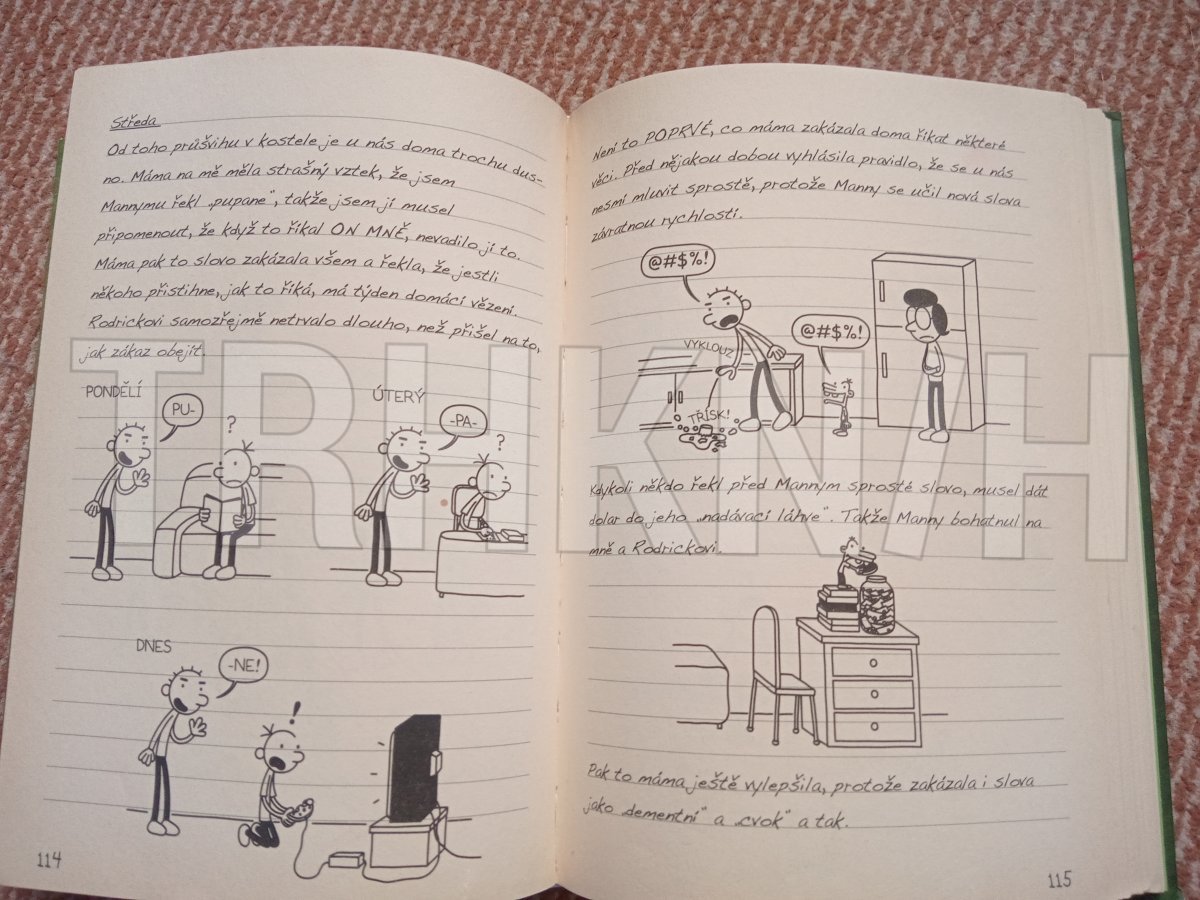 Středa
Od toho průšvihu v kostele je u nás doma trochu dus-
no. Máma na mě měla strašný vztek, že jsem
Mannymu řekl „pupane“, takže jsem jí musel
připomenout, že když to říkal ON MNĚ, nevadilo jí to.
Máma pak to slovo zakázala všem a řekla, že jestli
někoho přistihne, jak to říká, má týden domácí vězení.
Rodrickovi samozřejmě netrvalo dlouho, než přišel na to,
jak zákaz obejít.
PONDĚLÍ
PU-
?
ÚTERÝ
-PA-
?
DNES
-NE!
!
114
Není to POPRVÉ, co máma zakázala doma říkat některé
věci. Před nějakou dobou vyhlásila pravidlo, že se u nás
nesmí mluvit sprostě, protože Manny se učil nová slova
závratnou rychlostí.
@#$%!
VYKLOUZ
@#$%!
TŘÍSK!
Kdykoli někdo řekl před Mannym sprosté slovo, musel dát
dolar do jeho „nadávací láhve“. Takže Manny bohatnul na
mně a Rodrickovi.
Pak to máma ještě vylepšila, protože zakázala i slova
jako „dementní“ a „cvok“ a tak.
115
TRHKNIH